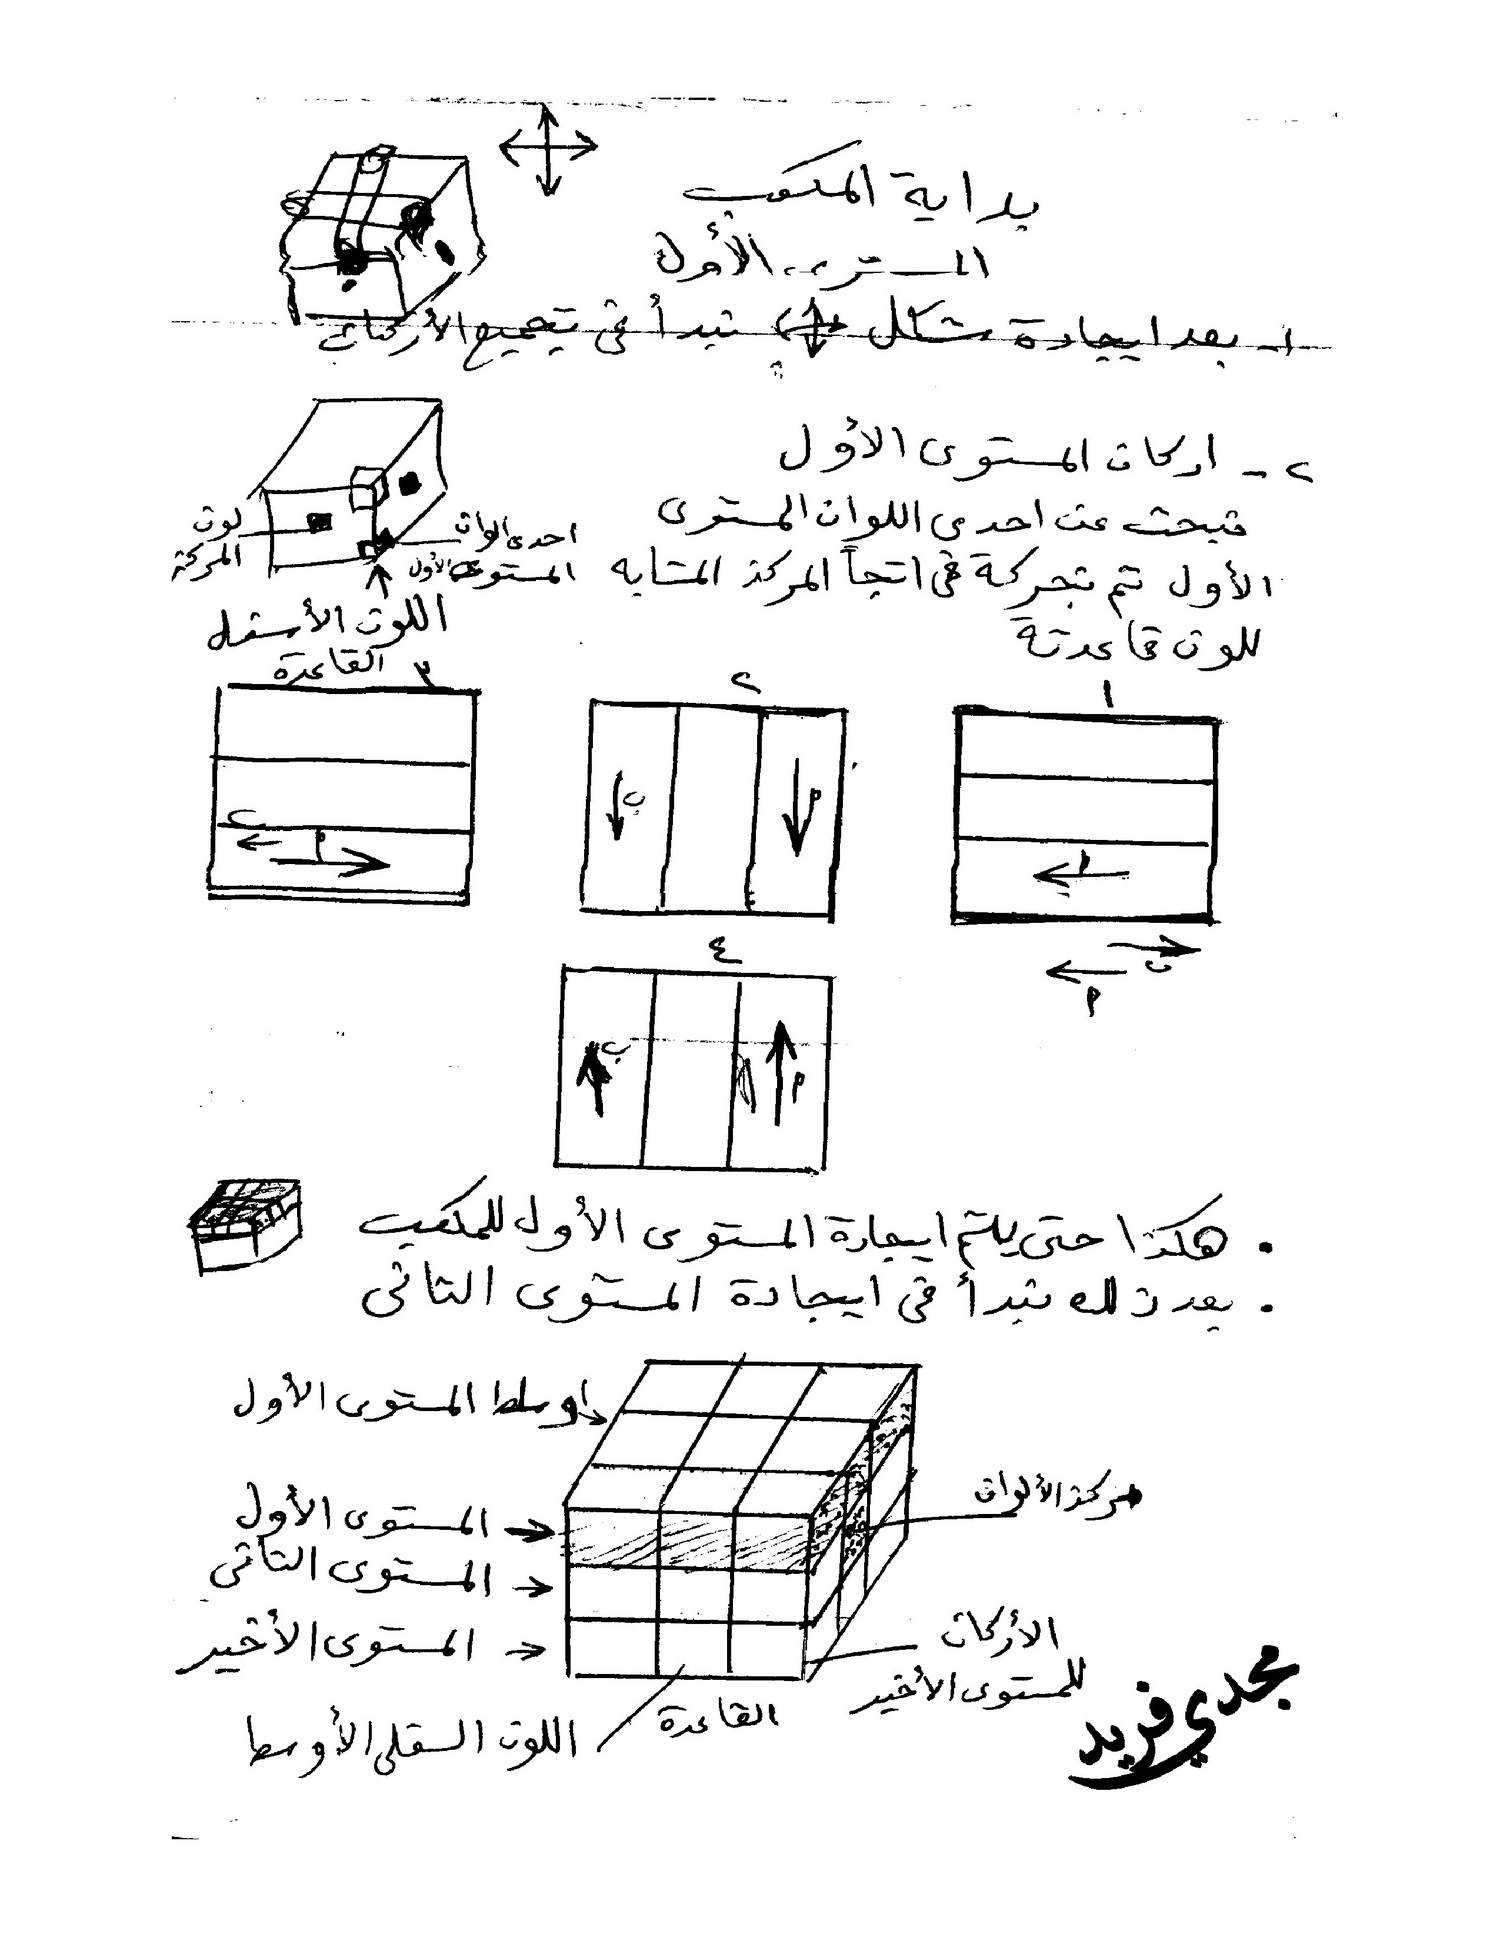 بداية المكعب
المستوى الأول
١- بعد ايجادة شكل نبدأ في تجميع الأركان
٢- اركان المستوى الأول
نبحث عن احدى اللوان المستوى
الأول ثم نحركة في اتجاً المركز المشابه
للون قاعدتة
لون
المركز
احدى الوان
المستوى الأول
اللون الأسفل
القاعدة
١
أ
ب
أ
٢
أ
ب
٣
أ
ب
٤
أ
ب
• هكذا حتى يتم ايجادة المستوى الأول للمكعب
• بعد ذلك نبدأ في ايجادة المستوى الثاني
اوسط المستوى الأول
المستوى الأول
المستوى الثاني
المستوى الأخير
مركز الألوان
الأركان
للمستوى الأخير
القاعدة
اللون السفلى الأوسط
مجدي فريد